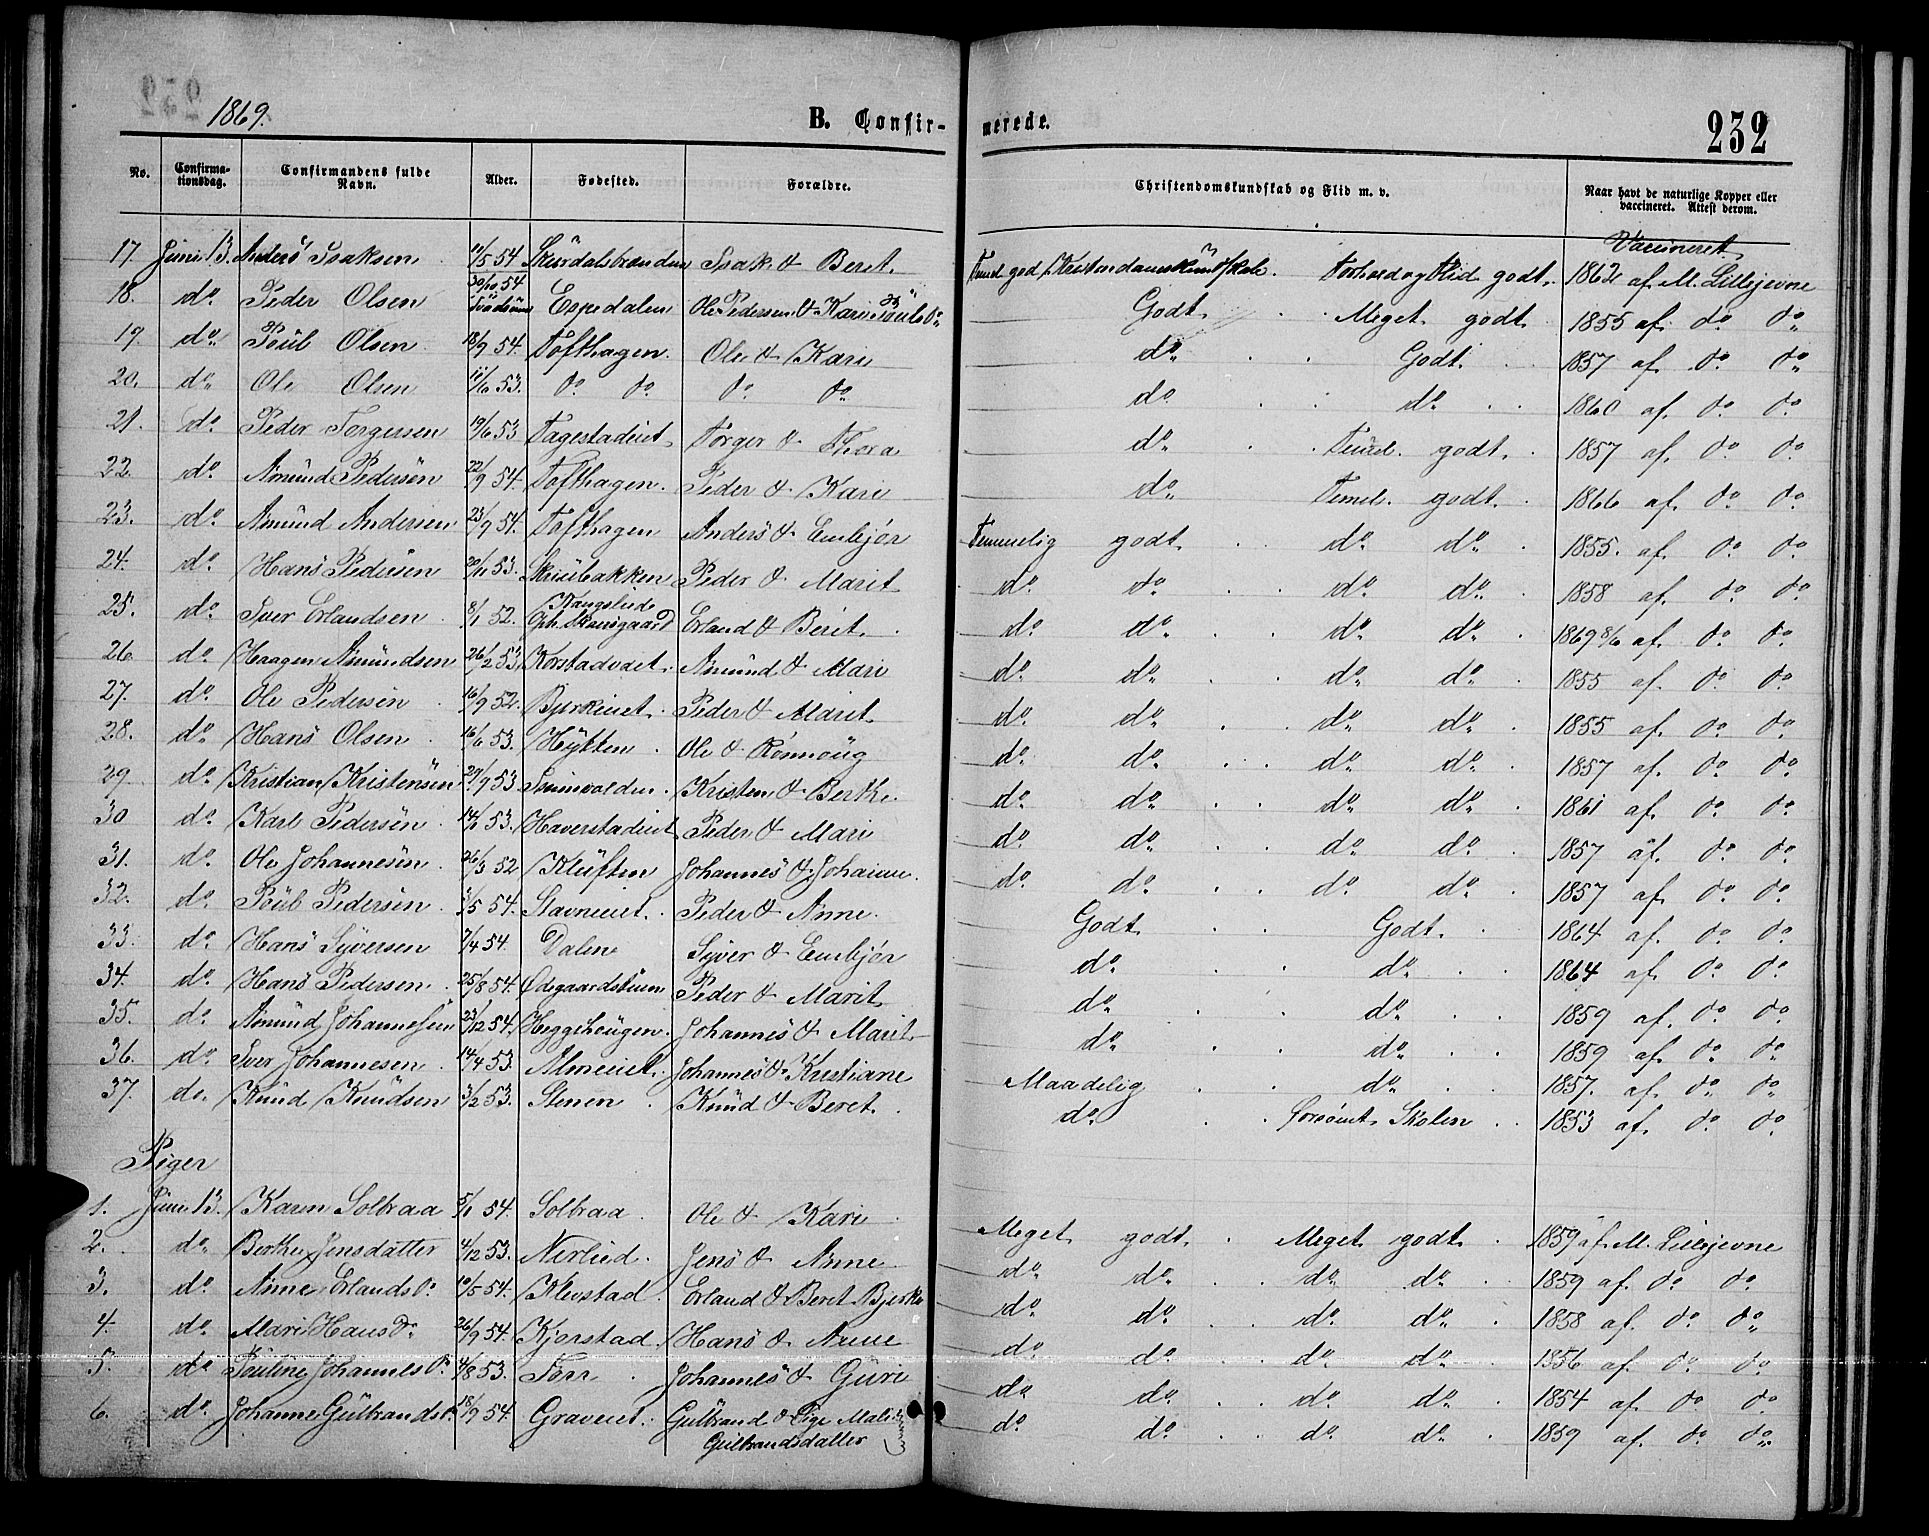 1869.
B. Confirmerede.
232
No. Confirmationsdag. Confirmandens fulde Navn. Alder. Fødested. Forældre. Christendomskundskab og Flid m. v. Naar havt de naturlige Kopper eller vaccineret. Attest derom.
Vaccineret
17. Juni 13. Anders Isaksen 54 Isak & Beret. Forhold og Flid godt. 1862 af M. Lillejevne
18. do. Peder Olsen 30/10 54 Espedalen Ole Pedersen & Kari Godt Meget godt 1855 af do. do.
19. do. Poül Olsen 18/9 54. Tofthagen. Ole & Kari do. Godt. 1857 af do. do.
20. do. Ole Olsen 53. do. do. do. do. do. do. 1860 af do. do.
21. do. Peder Torgersen 19/6 53 Fagestadeiet Torger & Thora do. Temel. godt. 1857 af do. do.
22 do. Amünd Pedersen 22/9 54. Tofthagen. Peder & Kari do. Temel. godt. 1866 af do. do.
23. do. Amünd Andersen 23/9 54. Tofthagen Anders & Embjør Temmelig godt. do. do. 1855. af do. do.
24. do. Hans Pedersen 20/11 53. Skriübakken Peder & Marit do. do. do. do. 1858 af do. do.
25. do. Iver Erlandsen 8/1 52. Erland & Berit. do. do. do. do. 1869 8/6 af do. do.
26. do. Haagen Amündsen 26/2 53 Amünd & Mari do. do. do. do. 1855 af do. do.
27. do. Ole Pedersen 16/9 52. Bjørkeiiet. Peder & Marit do. do. do. do. 1855 af do. do.
28. do. Hans Olsen 16/6 53. Hÿtten. Ole & Rønnoüg do. do. do. do. 1857 af do. do.
29 do. Kristian Kristensen 29/9 53 Kristen & Berthe. do. do. do. do. 1861 af do. do.
30 do. Karl Pedersen 53. Haverstadeiet Peder & Mari do. do. do. do. 1857 af do. do.
31. do. Ole Johannesen 26/3 52 Klüften Johannes & Johanne. do. do. do. do. 1857 af do. do.
32. do. Poül Pedersen 54. Stavneiet. Peder & Anne. Godt Godt. 1864 af do. do.
33. do. Hans Syversen 7/4 54. Dalen Syver & Embjør do. do. 1864 af do. do.
34. do. Hans Pedersen 25/8 54. Ødegaardstuen Peder & Marit do. do. 1859 af do. do.
35. do. Amünd Johannesen 23/12 54. Heggehaugen. Johannes & Marit do. do. 1859 af do. do.
36. do. Iver Johannesen 14/4 53. Almeiiet. Johannes & Kristiane Maadelig do. 1857. af do. do.
37. do. Knüd Knüdsen 3/2 53. Stenen. Knüd & Beret. do. Forsømt Skolen 1853 af do. do.
Piger
1. Juni 13. Karen Solbraa 5/1 54. Solbraa. Ole & Kari Meget godt. Meget godt 1859 af M. Lillejevne
2. do. Berthe Jensdatter 4/12 53. Nerlied. Jens & Anne do. do. do. do. 1859 af do. do.
3. do. Anne Erlandsdr. 10/5 54. Klevstad. Erland & Beret Bjerke do. do. do. do. 1858 af do. do.
4. do. Mari Hansdr. 26/9 54. Kjorstad. Hans & Anne do. do. do. do. 1856 af do. do.
5. do. Pouline Johannesdr. 4/8 53. Johannes & Güri do. do. do. do. 1854 af do. do.
6. do. Johanne Gülbrandsdr. 18/9 54. Graveiet. Gülbrand & Pige Mali Gülbrandsdatter do. do. do. do. 1859 af do. do.